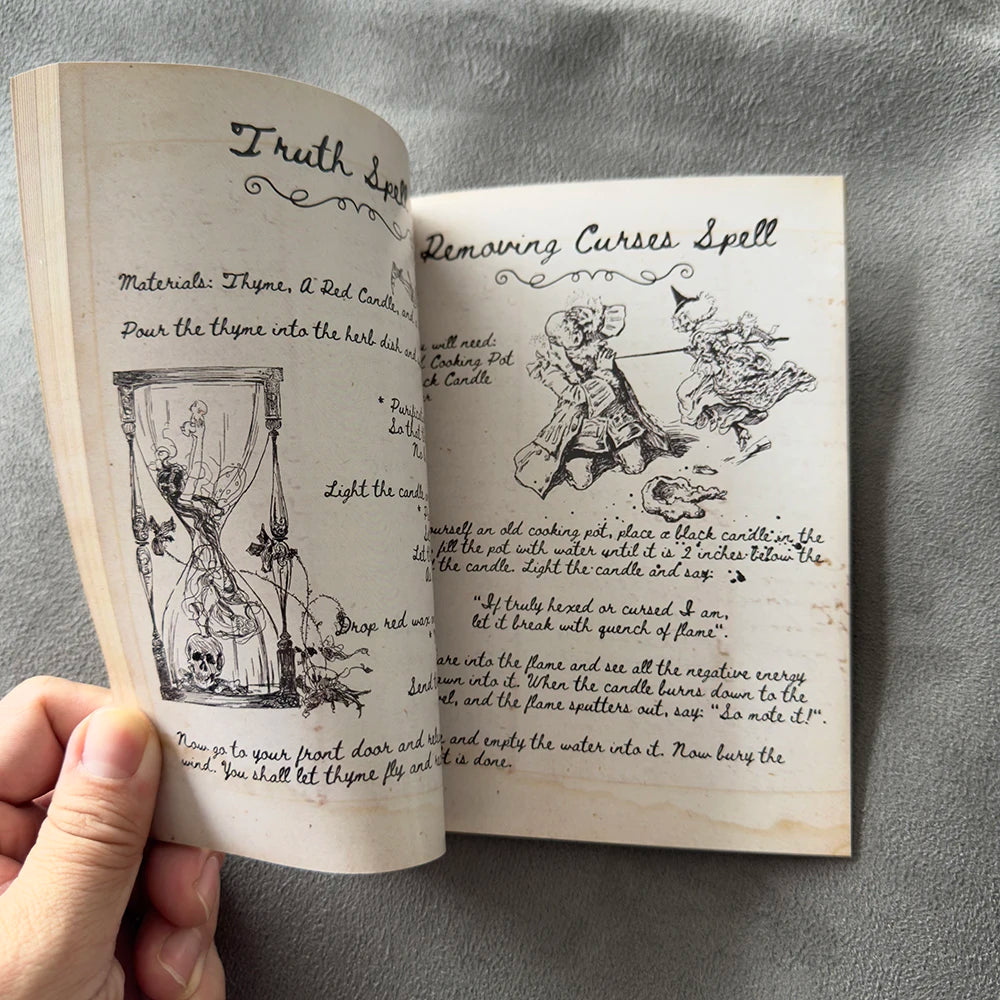 Truth Spell
Materials: Thyme, A Red Candle, and
Pour the thyme into the herb dish and
* 
So that
Light the candle
*
Drop red wax
Send
Now go to your front door and
wind. You shall let thyme fly and
Removing Curses Spell
will need:
Cooking Pot
Candle
ourself an old cooking pot, place a black candle in the
fill the pot with water until it is 2 inches below the
the candle. Light the candle and say:
"If truly hexed or cursed I am,
let it break with quench of flame".
into the flame and see all the negative energy
into it. When the candle burns down to the
and the flame sputters out, say: "So mote it!".
and empty the water into it. Now bury the
it is done.